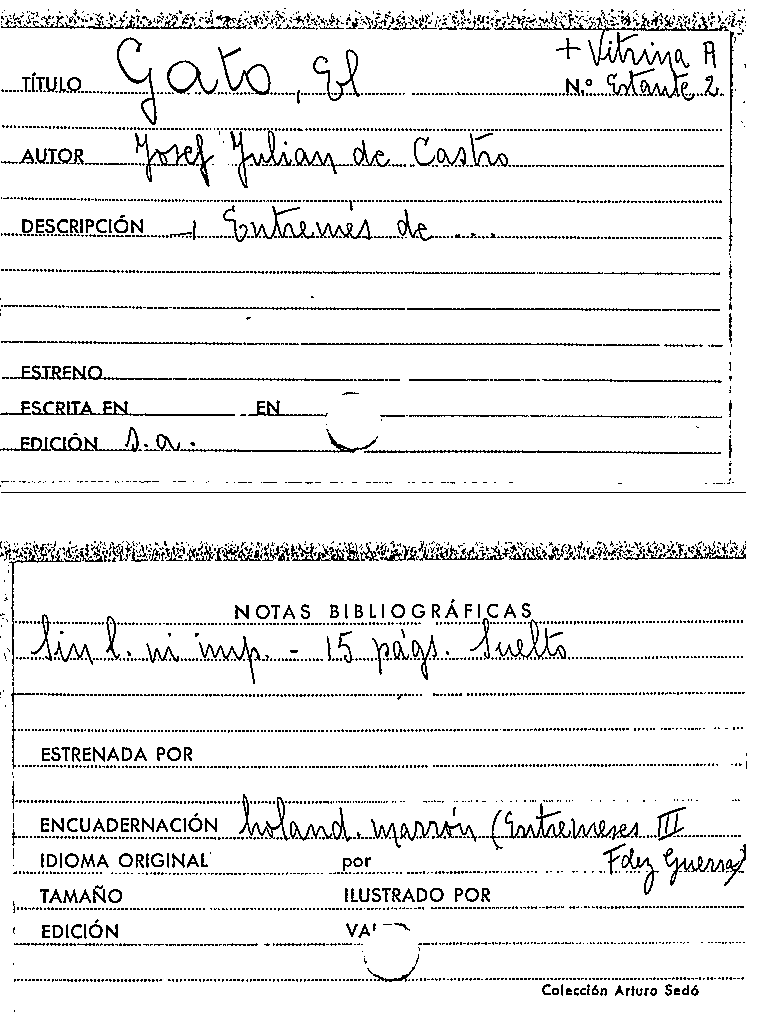 + Vitrina A
TÍTULO Gato, El N.º Estante 2
AUTOR Josef Julian de Castro
DESCRIPCIÓN Entremés de ...
ESTRENO
ESCRITA EN EN
EDICIÓN s.a.
NOTAS BIBLIOGRÁFICAS
Sin l. ni imp. - 15 págs. Suelto
ESTRENADA POR
ENCUADERNACIÓN holand. marrón (Entremeses III
IDIOMA ORIGINAL por Fdez Guerra)
TAMAÑO ILUSTRADO POR
EDICIÓN
Colección Arturo Sedó